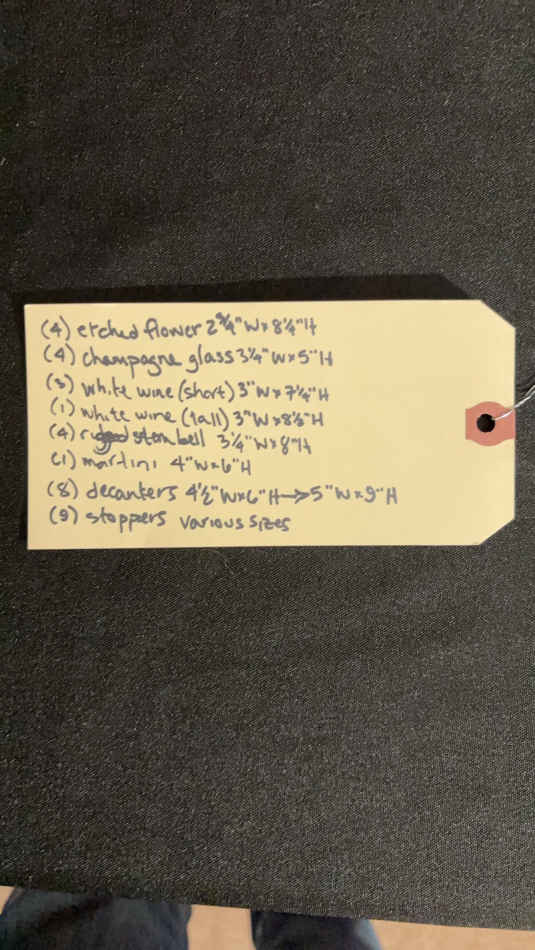 (4) etched flower 2¾"W x 8¼"H
(4) champagne glass 3¼"W x 5"H
(3) white wine (short) 3"W x 7¼"H
(1) white wine (tall) 3"W x 8½"H
(4) ridged stem bell 3¼"W x 8"H
(1) martini 4"W x 6"H
(8) decanters 4½"W x 6"H → 5"W x 9"H
(9) stoppers various sizes